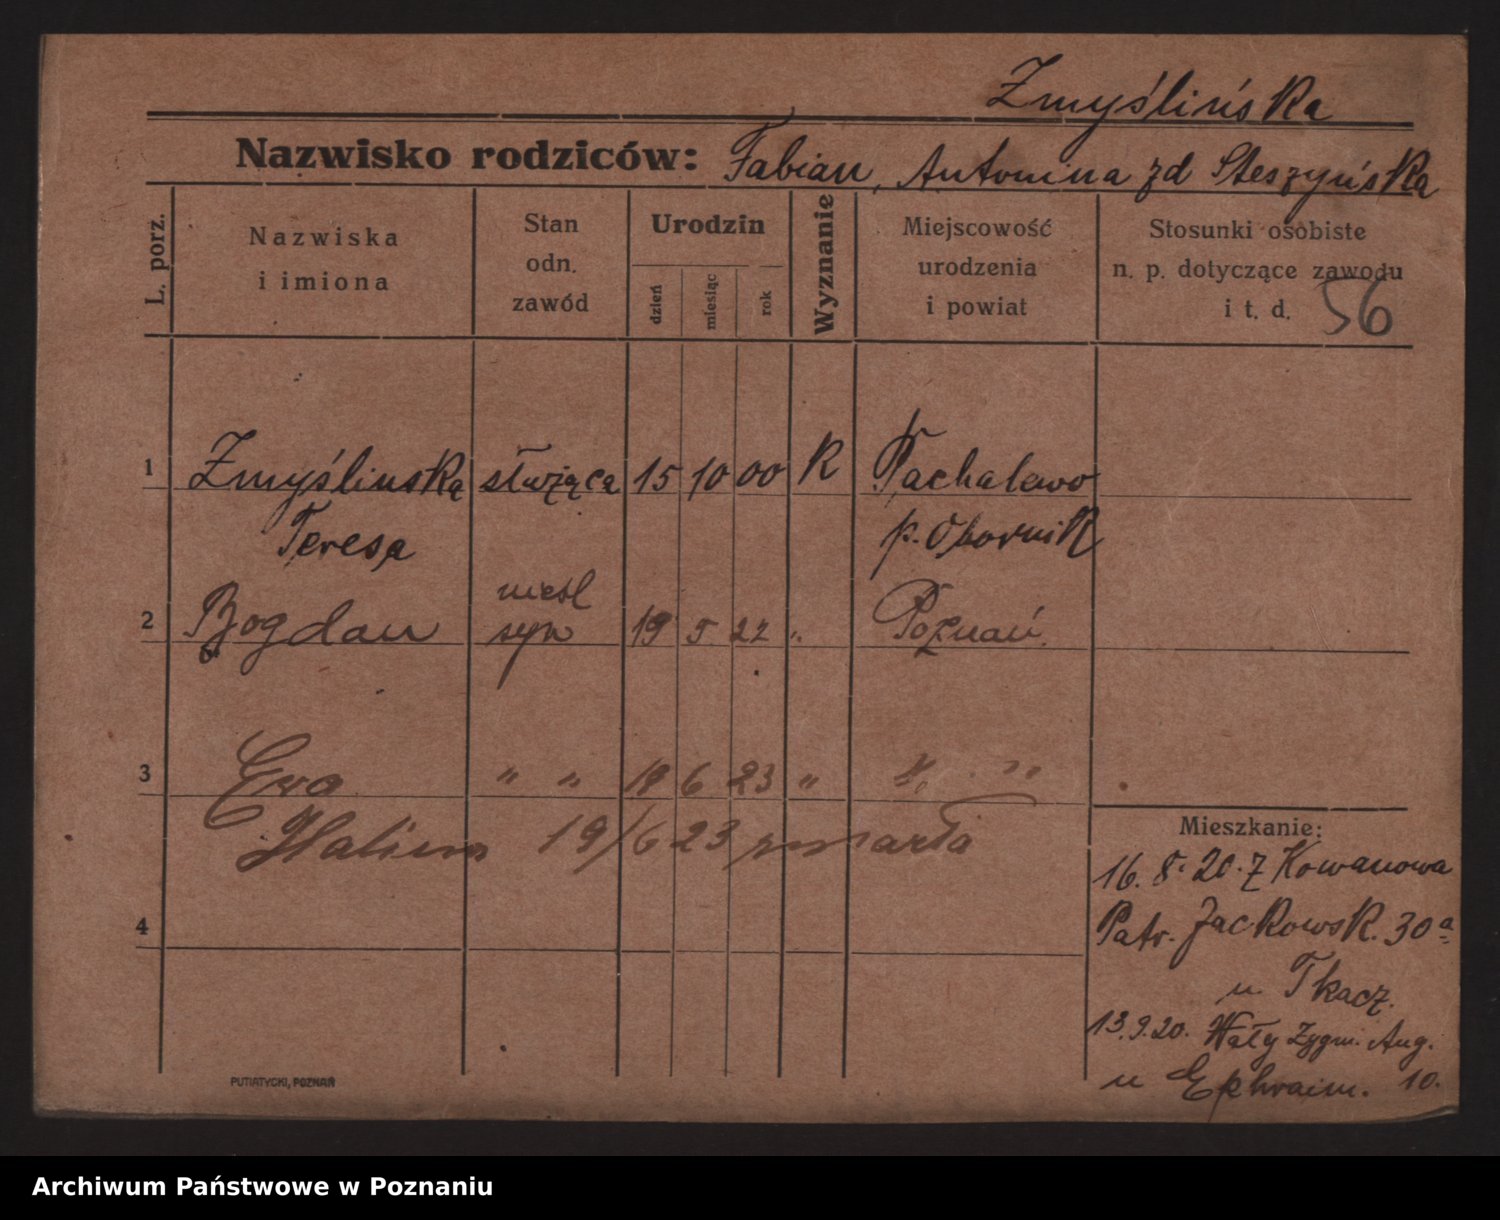 Zmyślińska
Nazwisko rodziców: Fabian, Antonina zd Steszyńska
L. porz.
Nazwiska
i imiona
Stan
odn.
zawód
Urodzin
dzień
miesiąc
rok
Wyznanie
Miejscowość
urodzenia
i powiat
Stosunki osobiste
n. p. dotyczące zawodu
i t. d.
56
1 Zmyślinska służąca 15 10 00 K Pacholewo
Teresa p. Obornik
nieśl
2 Bogdan syn 19 5 22 " Poznań
3 Ewa " " 19 6 23 " " "
Halina 19/6 23 zmarła
4
Mieszkanie:
16. 8. 20. z Kowanowa
Patr. Jackowsk. 30a
u. Tkacz.
13. 9. 20. Wały Zygm. Aug.
u Ephraim. 10.
PUTIATYCKI, POZNAŃ
Archiwum Państwowe w Poznaniu